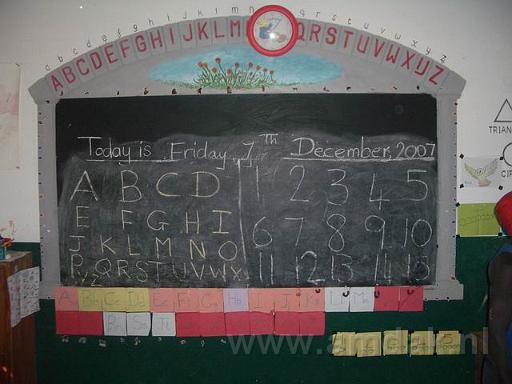 a b c d e f g h i j k l m n q r s t u v w x y z
A B C D E F G H I J K L M Q R S T U V W X Y Z
Today is Friday, 7th December, 2007
A B C D 1 2 3 4 5
E F G H I 6 7 8 9 10
J K L M N O 11 12 13 14 15
P Q R S T U V W X
Y Z
TRIAN
CIR
www.amdal.nl